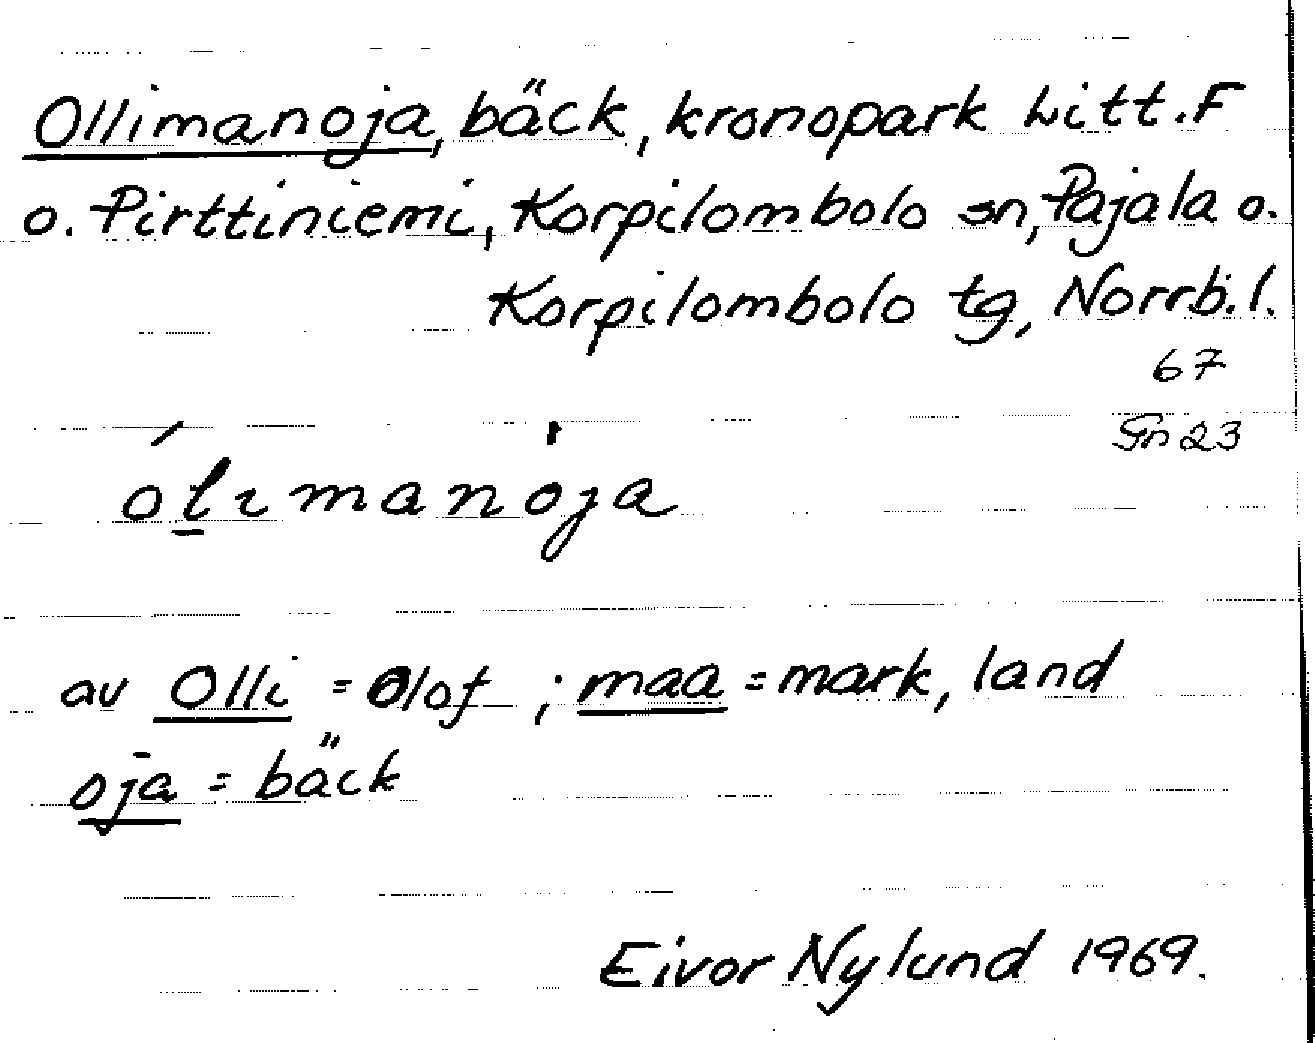 Ollimanoja, bäck, kronopark Litt. F
o. Pirttiniemi, Korpilombolo sn, Pajala o.
Korpilombolo tg, Norrb. l.
67
Gn 23
ólımanoja
av Olli = Olof ; maa = mark, land
oja = bäck
Eivor Nylund 1969.